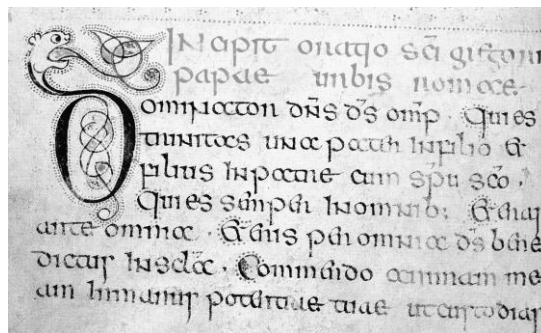 Incipit oratio sci gregorii
papae urbis romae
Dominator dns ds omp. Qui es
trinitas una pater in filio &
filius in patre cum spu sco.
Qui es semper in omnib; & eras
ante omnia. & eris per omnia ds bene
dictus in scla. Commendo animam me
am in manus potentiae tuae ut custodias